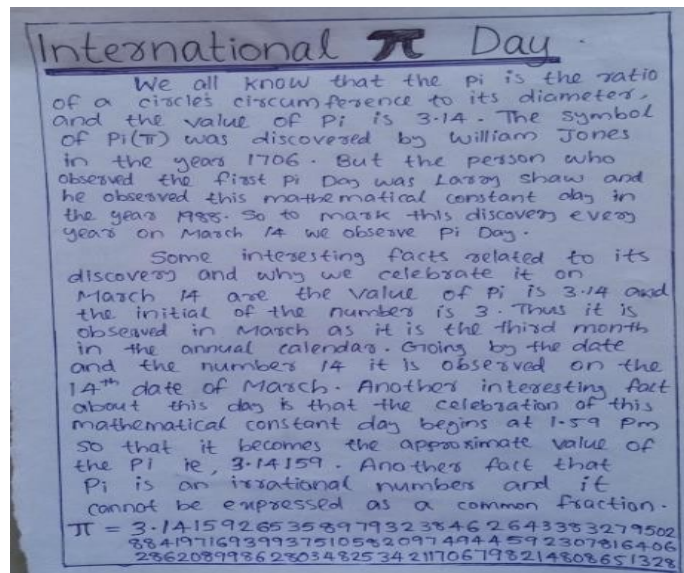 International π Day.
We all know that the Pi is the ratio
of a circle's circumference to its diameter,
and the value of Pi is 3.14. The symbol
of Pi(π) was discovered by William Jones
in the year 1706. But the person who
observed the first Pi Day was Larry Shaw and
he observed this mathematical constant day in
the year 1988. So to mark this discovery every
year on March 14 we observe Pi Day.
Some interesting facts related to its
discovery and why we celebrate it on
March 14 are the value of Pi is 3.14 and
the initial of the number is 3. Thus it is
observed in March as it is the third month
in the annual calendar. Going by the date
and the number 14 it is observed on the
14th date of March. Another interesting fact
about this day is that the celebration of this
mathematical constant day begins at 1.59 Pm
so that it becomes the approximate value of
the Pi ie, 3.14159. Another fact that
Pi is an irrational number and it
cannot be expressed as a common fraction.
π = 3.141592653589793238462643383279502
884197169399375105820974944592307816406
286208998628034825342117067982148086513 28